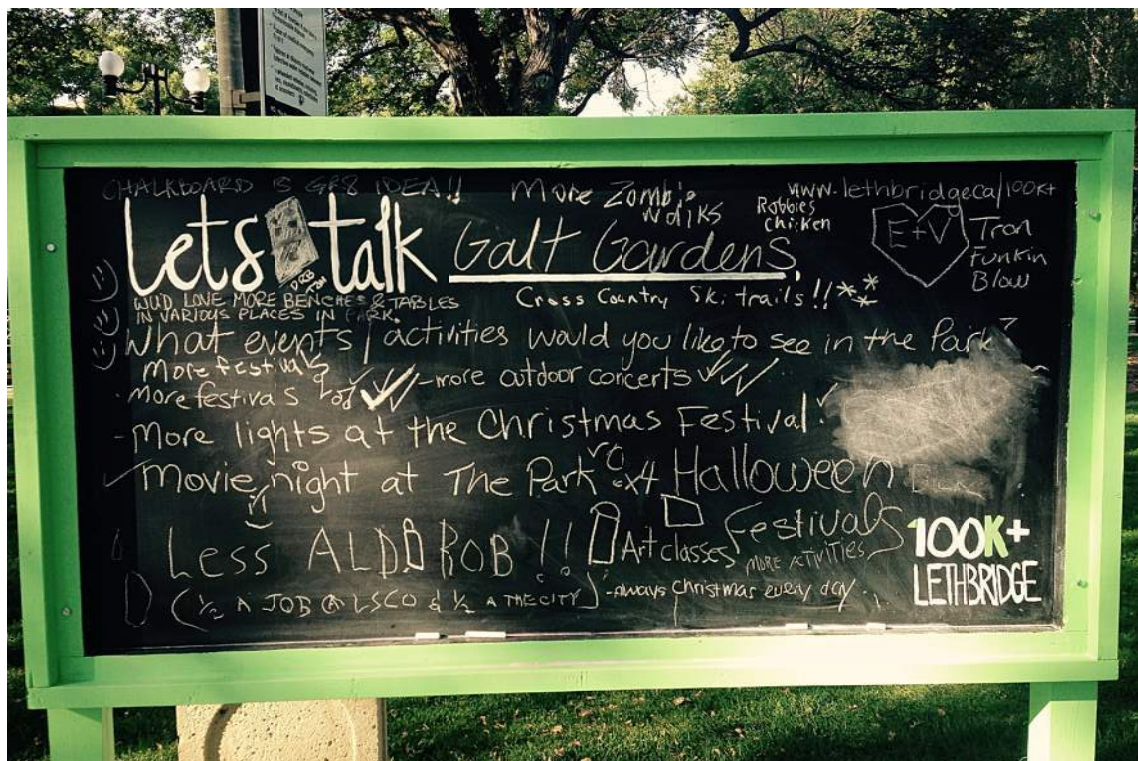 CHALKBOARD IS GR8 IDEA!!
More Zombie Walks
Robbies Chicken
www.lethbridge.ca/100k+
E+V
Tron
Funkin
Blow
Lets talk Galt Gardens
WUD LOVE MORE BENCHES & TABLES
IN VARIOUS PLACES IN PARK.
Cross Country Ski trails!!
What events/activities would you like to see in the Park?
More festivals
- More festivals
- more outdoor concerts
- More lights at the Christmas Festival!
Movie night at The Park
Halloween
Festivals
Less ALDO ROB!!
Art classes
MORE ACTIVITIES
(1/2 A JOB @ LSCO & 1/2 A THE CITY)
- always Christmas every day
100K+
LETHBRIDGE